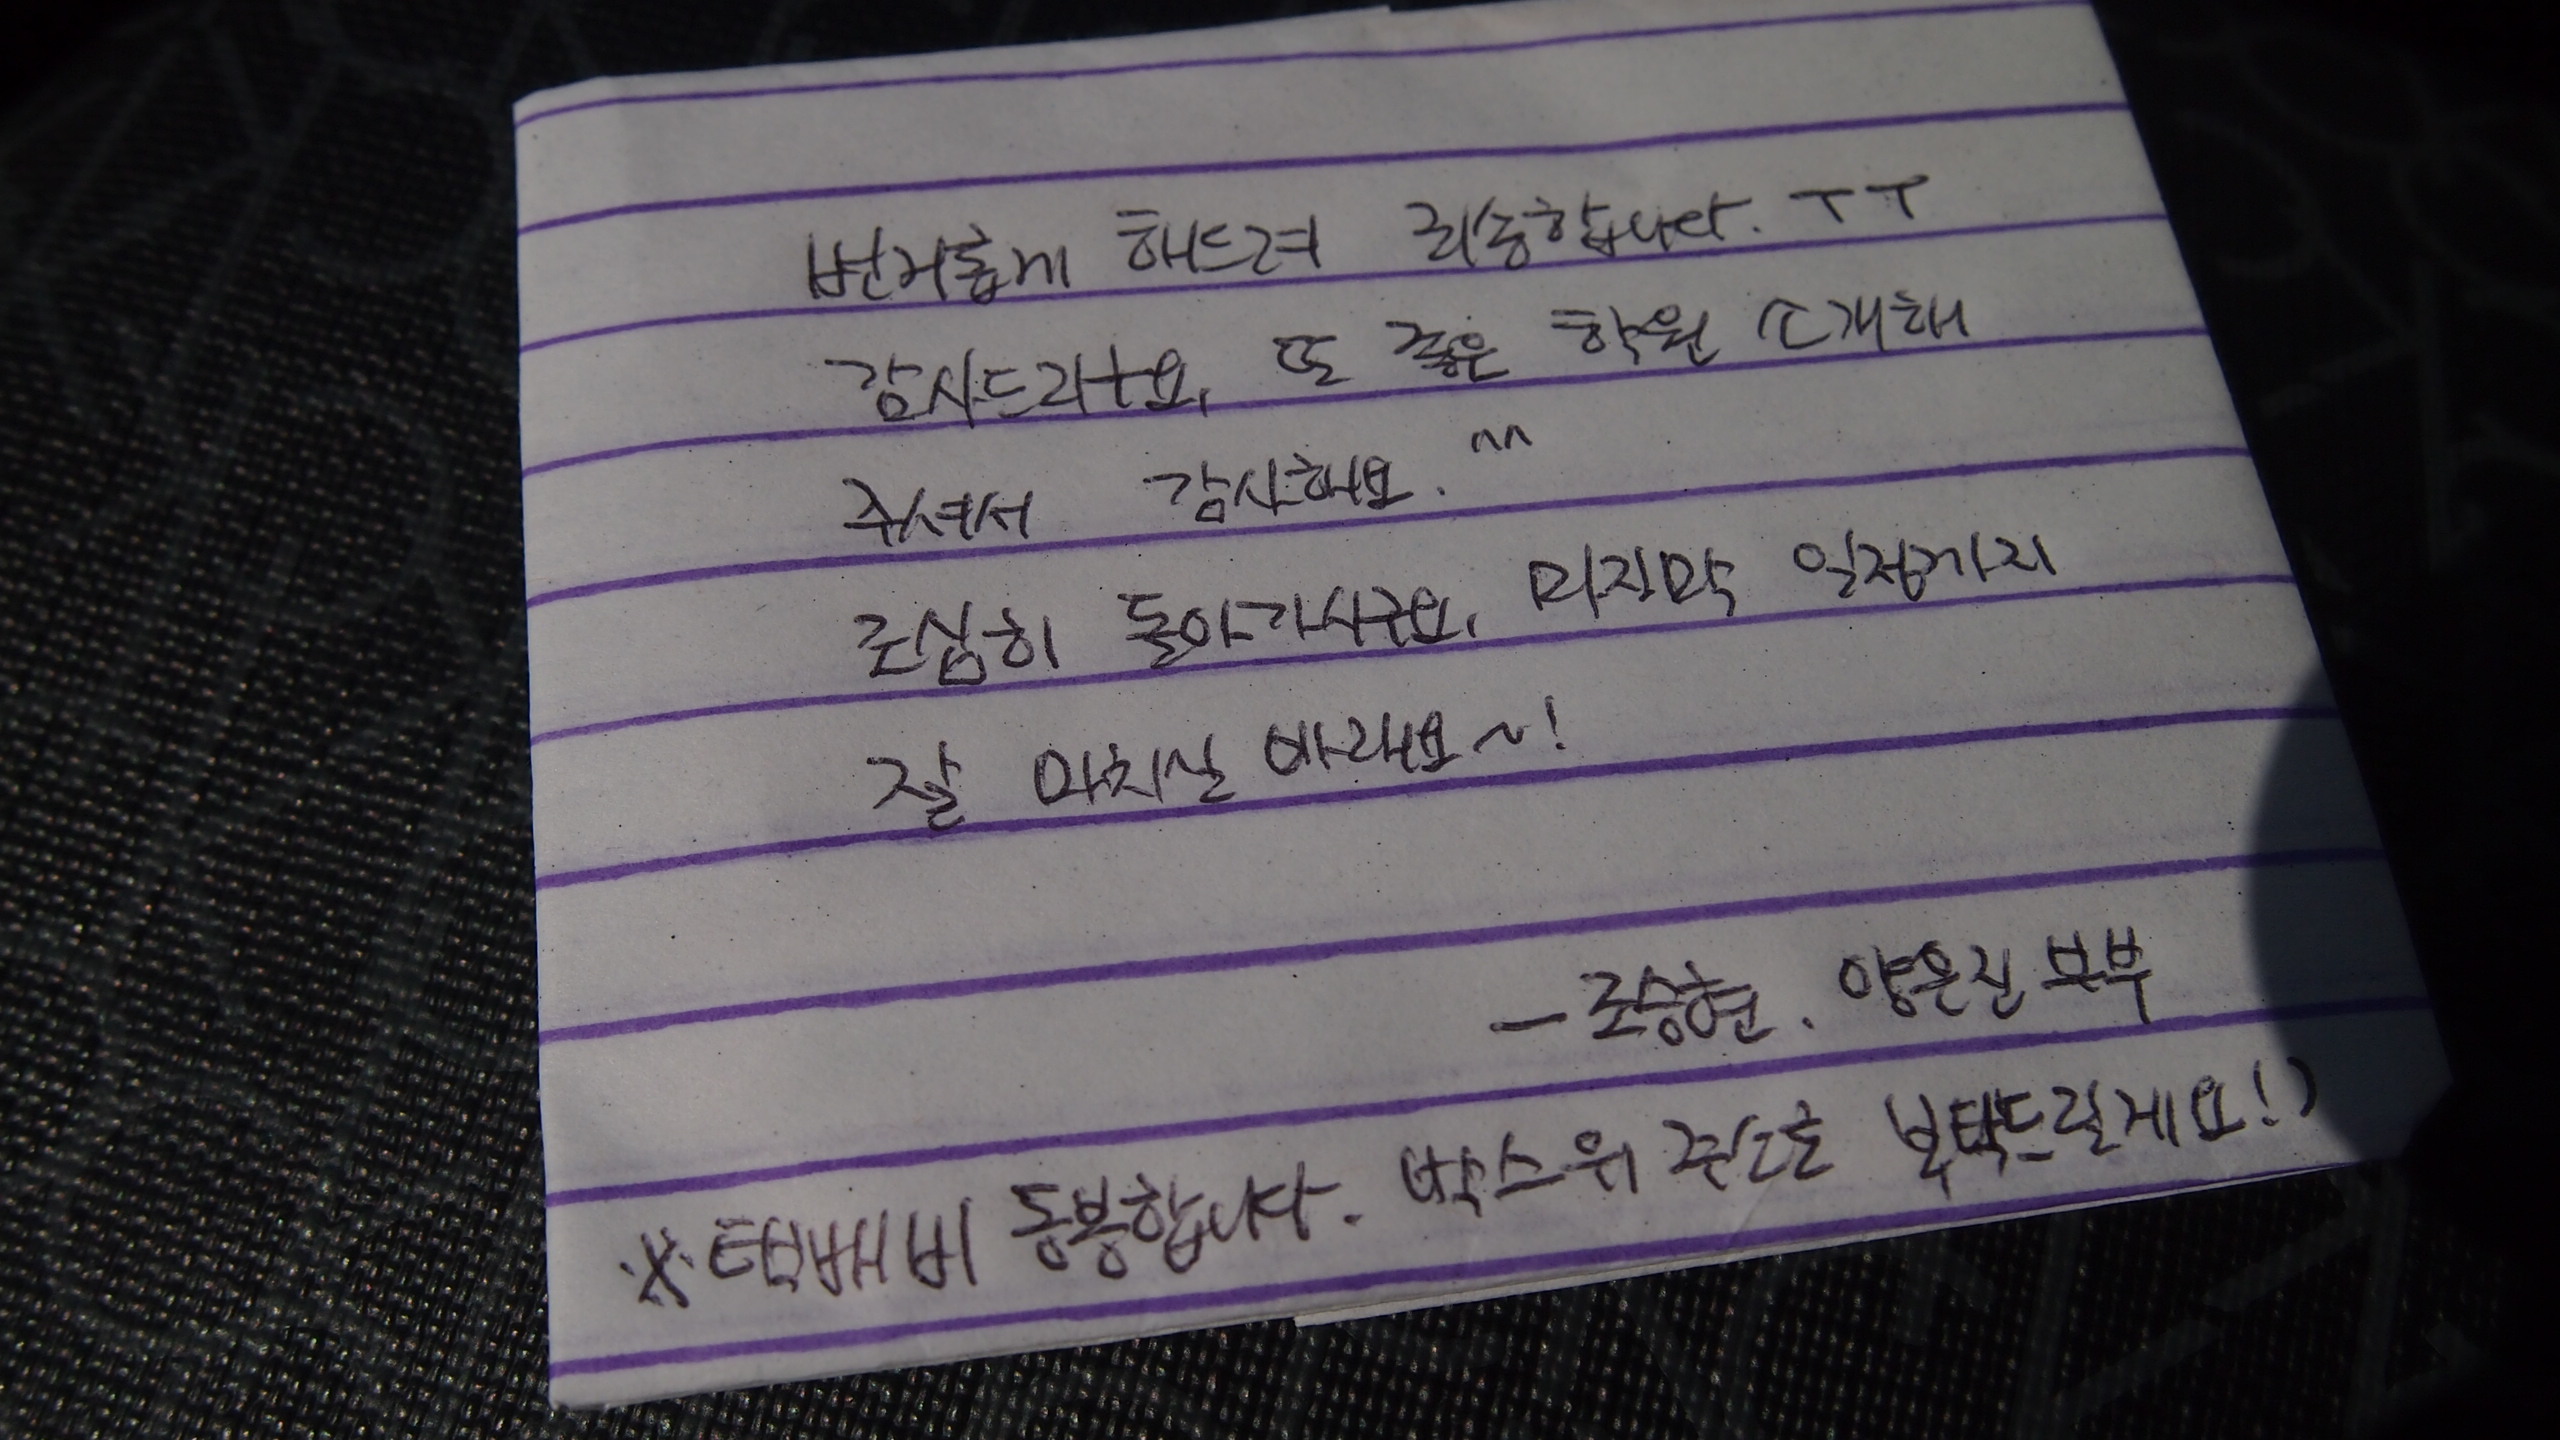 번거롭게 해드려 죄송합니다. ㅜㅜ
감사드리구요, 또 좋은 학원 소개해
주셔서 감사해요. ^^
조심히 돌아가시구요, 마지막 일정까지
잘 마치실 바래요~!
- 조승현. 양은진 부부
※택배비 동봉합니다. 박스위 주소로 부탁드릴게요!)